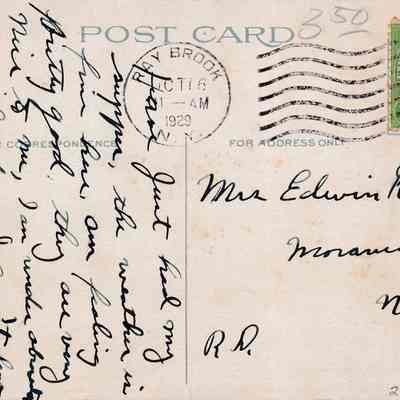 3 50
POST CARD
RAY BROOK
OCT 16
1 - AM
1929
N.Y.
CORRESPONDENCE
FOR ADDRESS ONLY
Have just had my
supper, the weather is
fine here, am feeling
Pretty good, they are very
Nice to me, I am under
Mrs Edwin
Morav
N
R.D.
2